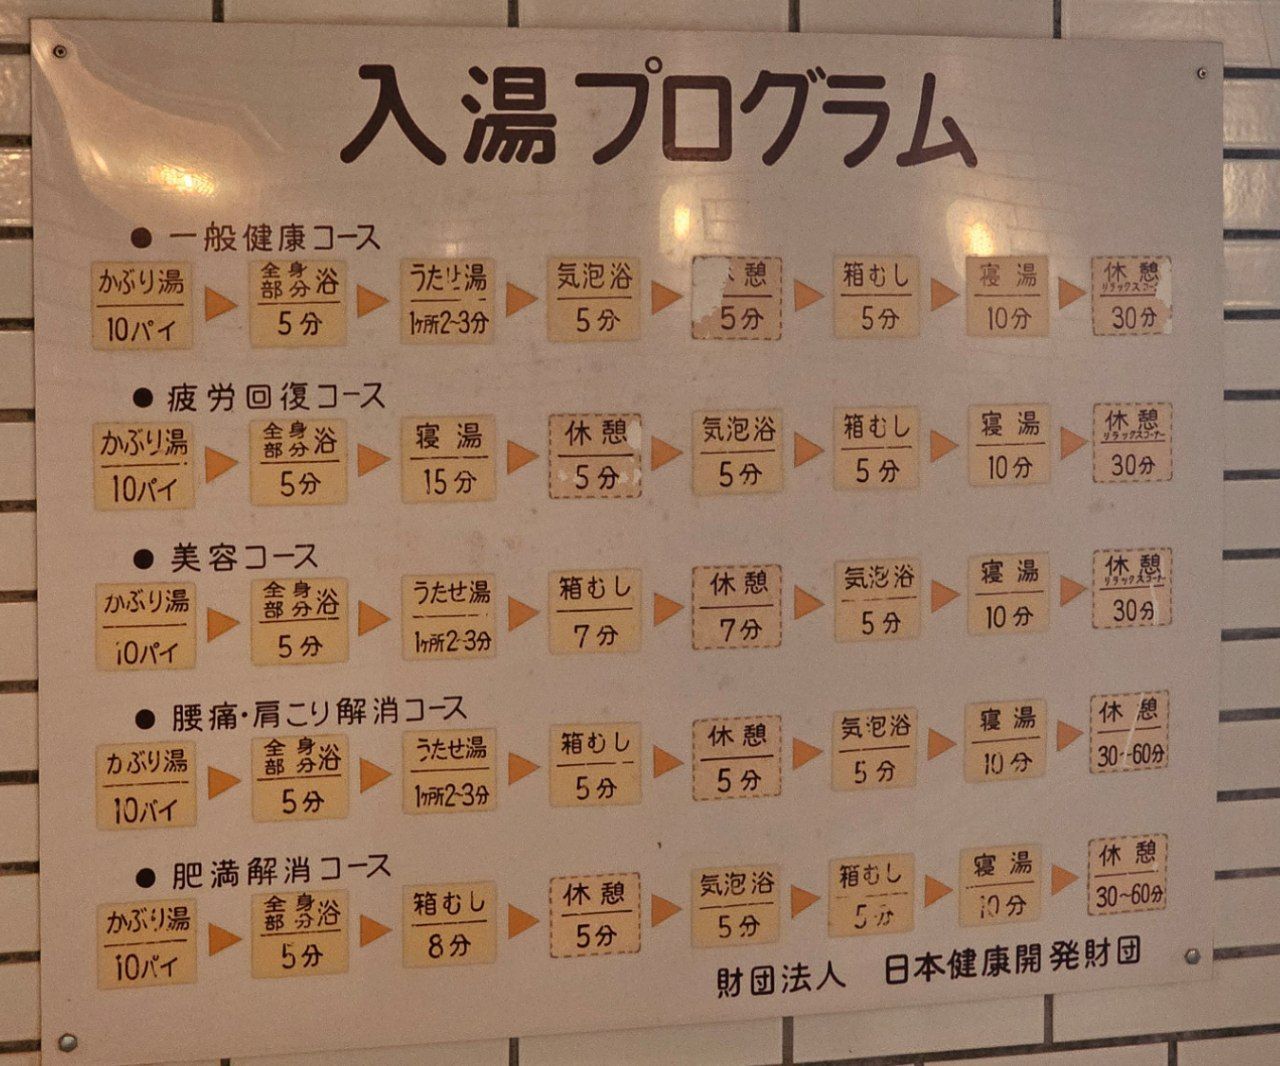 入湯プログラム
● 一般健康コース
かぶり湯 10パイ ▶ 全身部分浴 5分 ▶ うたせ湯 1ヶ所2~3分 ▶ 気泡浴 5分 ▶ 憩 5分 ▶ 箱むし 5分 ▶ 寝湯 10分 ▶ 休憩 リラックスコーナー 30分
● 疲労回復コース
かぶり湯 10パイ ▶ 全身部分浴 5分 ▶ 寝湯 15分 ▶ 休憩 5分 ▶ 気泡浴 5分 ▶ 箱むし 5分 ▶ 寝湯 10分 ▶ 休憩 リラックスコーナー 30分
● 美容コース
かぶり湯 10パイ ▶ 全身部分浴 5分 ▶ うたせ湯 1ヶ所2~3分 ▶ 箱むし 7分 ▶ 休憩 7分 ▶ 気泡浴 5分 ▶ 寝湯 10分 ▶ 休憩 リラックスコーナー 30分
● 腰痛・肩こり解消コース
かぶり湯 10パイ ▶ 全身部分浴 5分 ▶ うたせ湯 1ヶ所2~3分 ▶ 箱むし 5分 ▶ 休憩 5分 ▶ 気泡浴 5分 ▶ 寝湯 10分 ▶ 休憩 30~60分
● 肥満解消コース
かぶり湯 10パイ ▶ 全身部分浴 5分 ▶ 箱むし 8分 ▶ 休憩 5分 ▶ 気泡浴 5分 ▶ 箱むし 5分 ▶ 寝湯 10分 ▶ 休憩 30~60分
財団法人 日本健康開発財団